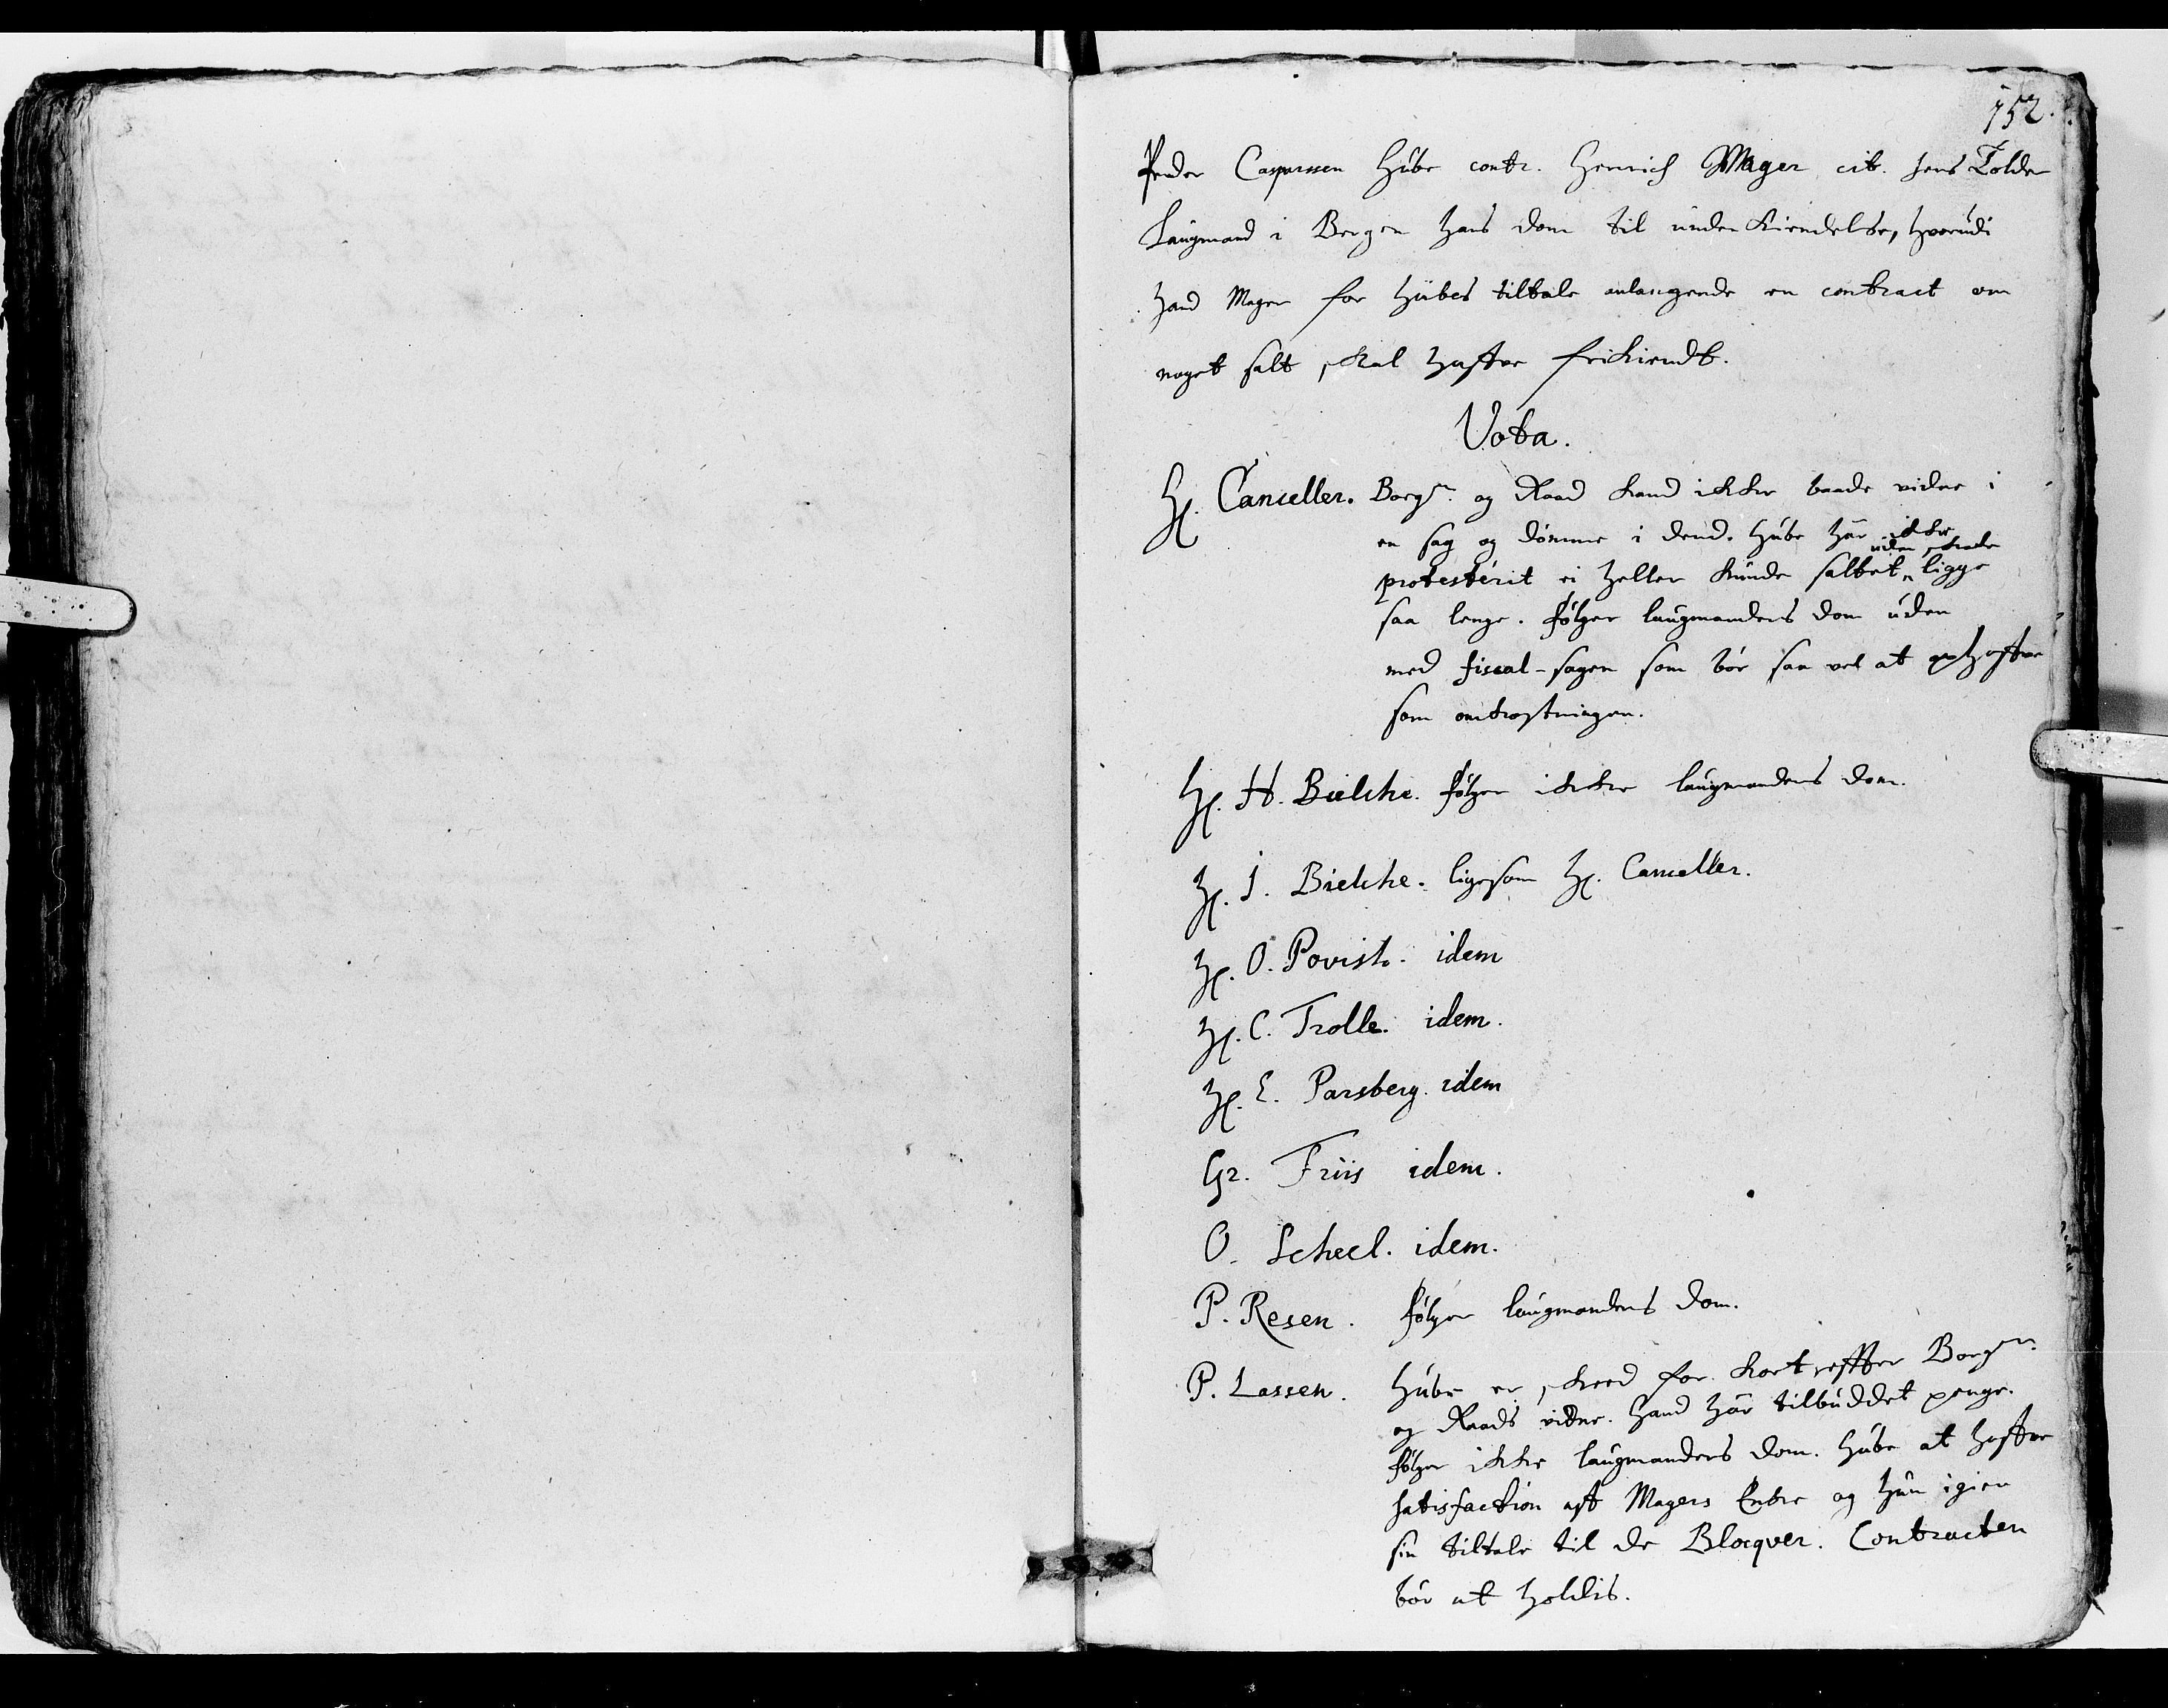 152.
Peder Caspersen Hube contr. Henrich Mager cit. Jens Tolder
Laugmand i Bergen hans dom til underkiendelse, hvorudi
hand Mager for Hubes tiltale anlangende en contract om
noget salt skal haffve frikiendt.
Vota.
H. Canceller. Borgm. og Raad kand ikke baade vidne i
en sag og dømme i dend. Hube har ikke
uden skade
protesterit ei heller kunde saltet ligge
saa lenge. følger laugmandens dom uden
med fiscal-sagen som bør saa vel at ophæfves
som omkostningen.
H. H. Bielche. følger ikke laugmandens dom.
H. J. Bielche. ligesom H. Canceller.
H. O. Povisk. idem
H. C. Trolle. idem.
H. E. Parsberg. idem
Gr. Friis idem.
O. Scheel. idem.
P. Resen. følger laugmandens dom.
P. Lassen. Hube er skeed for kort effter Borgm.
og Raads vidne. hand har tilbuddet penge.
følger ikke laugmandens dom. Hube at haffve
satisfaction aff Magers Enke og hun igien
sin tiltale til de Blocqver. Contracten
bør at holdis.